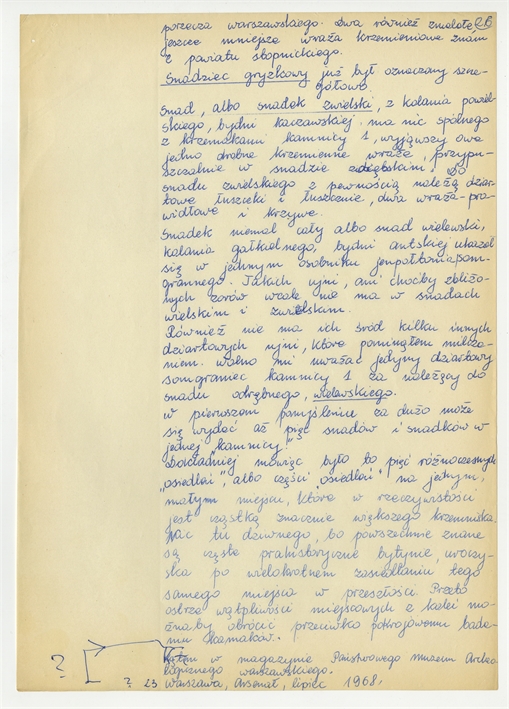 porzecza warszawskiego. Dwa również zmalote, 26
jeszcze mniejsze wraża krzemienione znam
z powiatu stopnickiego.
Snadziec gryzkowy już był oznaczony szcze-
gółowo.
Snad, albo snadek zwielski, z kolania powiel-
skiego, bydni kaczawskiej, ma nic spólnego
z krzemakami kamnicy 1, wyjąwszy owe
jedno drobne krzemienne wraże, przypu-
szczalnie w snadzie Do
snadu zwielskiego z pewnością należą dziar-
towe tuszczeki i tłuszcznie, dwa wraża pra-
widłowe i krzywe.
Snadek niemal cały albo snad wielewski,
kolania gałkalnego, bydni antskiej ukazał
się w jednym osobniku
grannego. Takich ujni, ani choćby zbliżo-
nych zarów wcale nie ma w snadach
wielskim i zwielskim.
Również nie ma ich śród kilku innych
dziartowych ujni, które pominąłem milcze-
niem. Wolno mi uważać jedyny dziartowy
somgraniec kamnicy 1 za należący do
snadu odrębnego, wielewskiego.
W pierwszem pomyślenie za dużo może
się wydać aż pięć snadów i snadków w
jednej "kamnicy".
Dokładniej mówiąc było to pięć różnoczesnych
"osiedlai", albo części "osiedlai", na jednym,
małym miejscu, które w rzeczywistości
jest cząstką znacznie większego krzemniska.
Nac tu dziwnego, bo powszechnie znane
są częste prahistoryczne bytynie, uroczy-
ska po wielokrotnem zasiedlaniu tego
samego miejsca w przeszłości. Przeto
ostrze wątpliwości miejscowych z kolei mo-
żnaby obrócić przeciwko pokrojowemu bada-
niu kamaków.
w magazynie Państwowego Muzeum Archeo-
logicznego warszawskiego.
? ? 23 Warszawa, Arsenał, lipiec 1968.